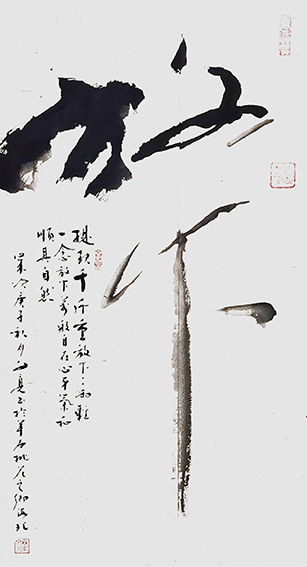 放下
提起千斤重放下二兩輕
一念放下萬般自在心平氣和
順其自然
歲次庚子秋月